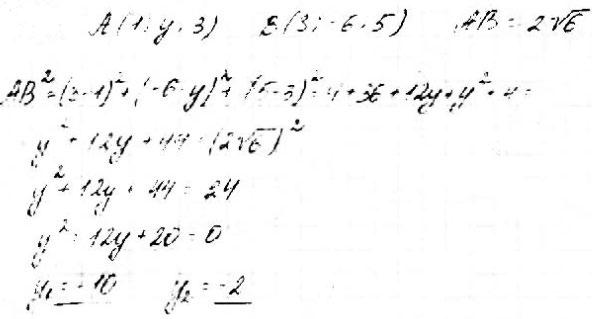 A(1; y; 3) B(3; -6; 5) AB = 2√6
AB² = (3-1)² + (-6-y)² + (5-3)² = 4 + 36 + 12y + y² + 4 =
y² + 12y + 44 = (2√6)²
y² + 12y + 44 = 24
y² + 12y + 20 = 0
y₁ = -10 y₂ = -2